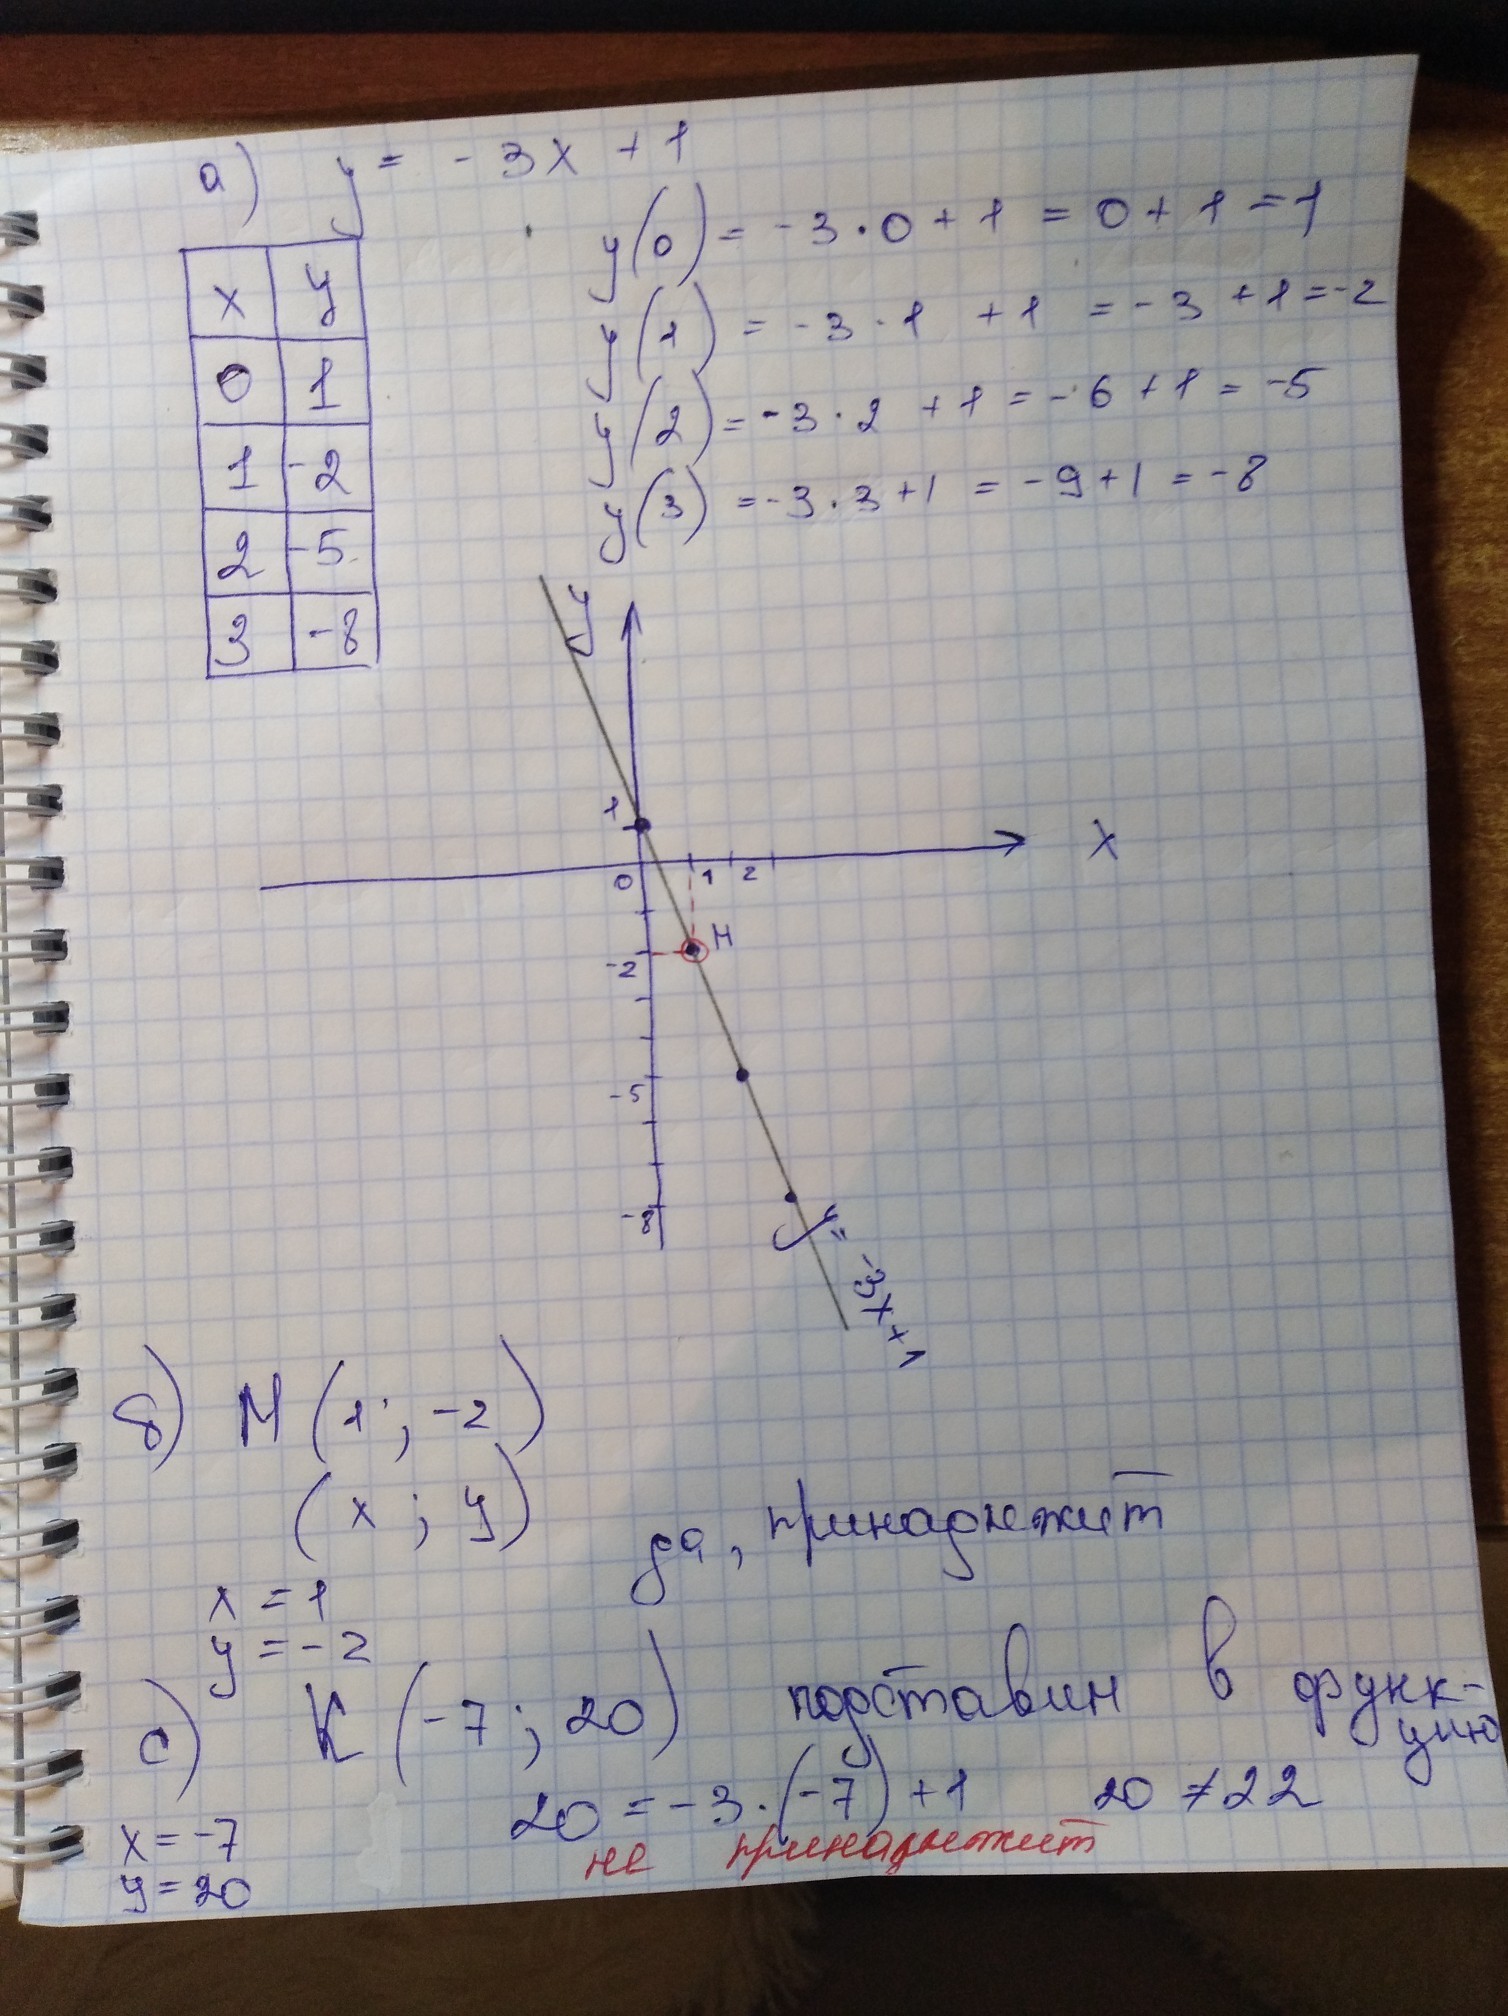 а) y = -3x + 1
y(0) = -3·0 + 1 = 0 + 1 = 1
y(1) = -3·1 + 1 = -3 + 1 = -2
y(2) = -3·2 + 1 = -6 + 1 = -5
y(3) = -3·3 + 1 = -9 + 1 = -8
x y
0 1
1 -2
2 -5
3 -8
y
1
x
0 1 2
M
-2
-5
-8
y = -3x + 1
б) M (1 ; -2)
(x ; y)
да, принадлежит
x = 1
y = -2
c) K (-7 ; 20) подставим в функ-
цию
20 = -3·(-7) + 1 20 ≠ 22
x = -7
не принадлежит
y = 20